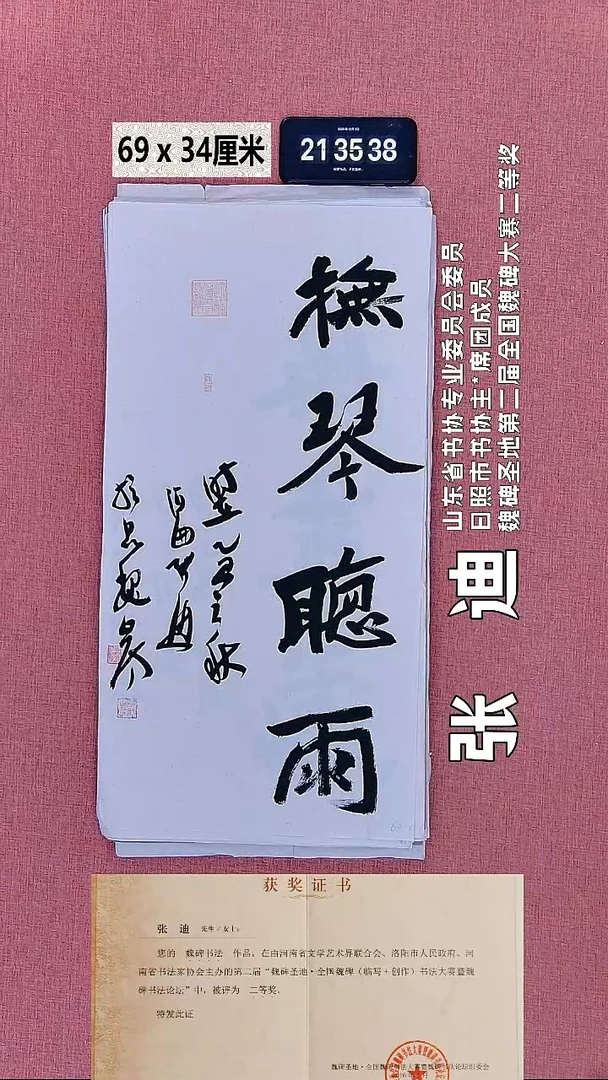 69 x 34厘米
21 35 38
撫琴聽雨
张迪
山东省书协专业委员会委员
日照市书协主*席团成员
魏碑圣地第二届全国魏碑大赛二等奖
获奖证书
张 迪 先生/女士:
您的 魏碑书法 作品,在由河南省文学艺术界联合会、洛阳市人民政府、河
南省书法家协会主办的第二届“魏碑圣地·全国魏碑(临写+创作)书法大赛暨魏
碑书法论坛”中,被评为 二等奖。
特发此证